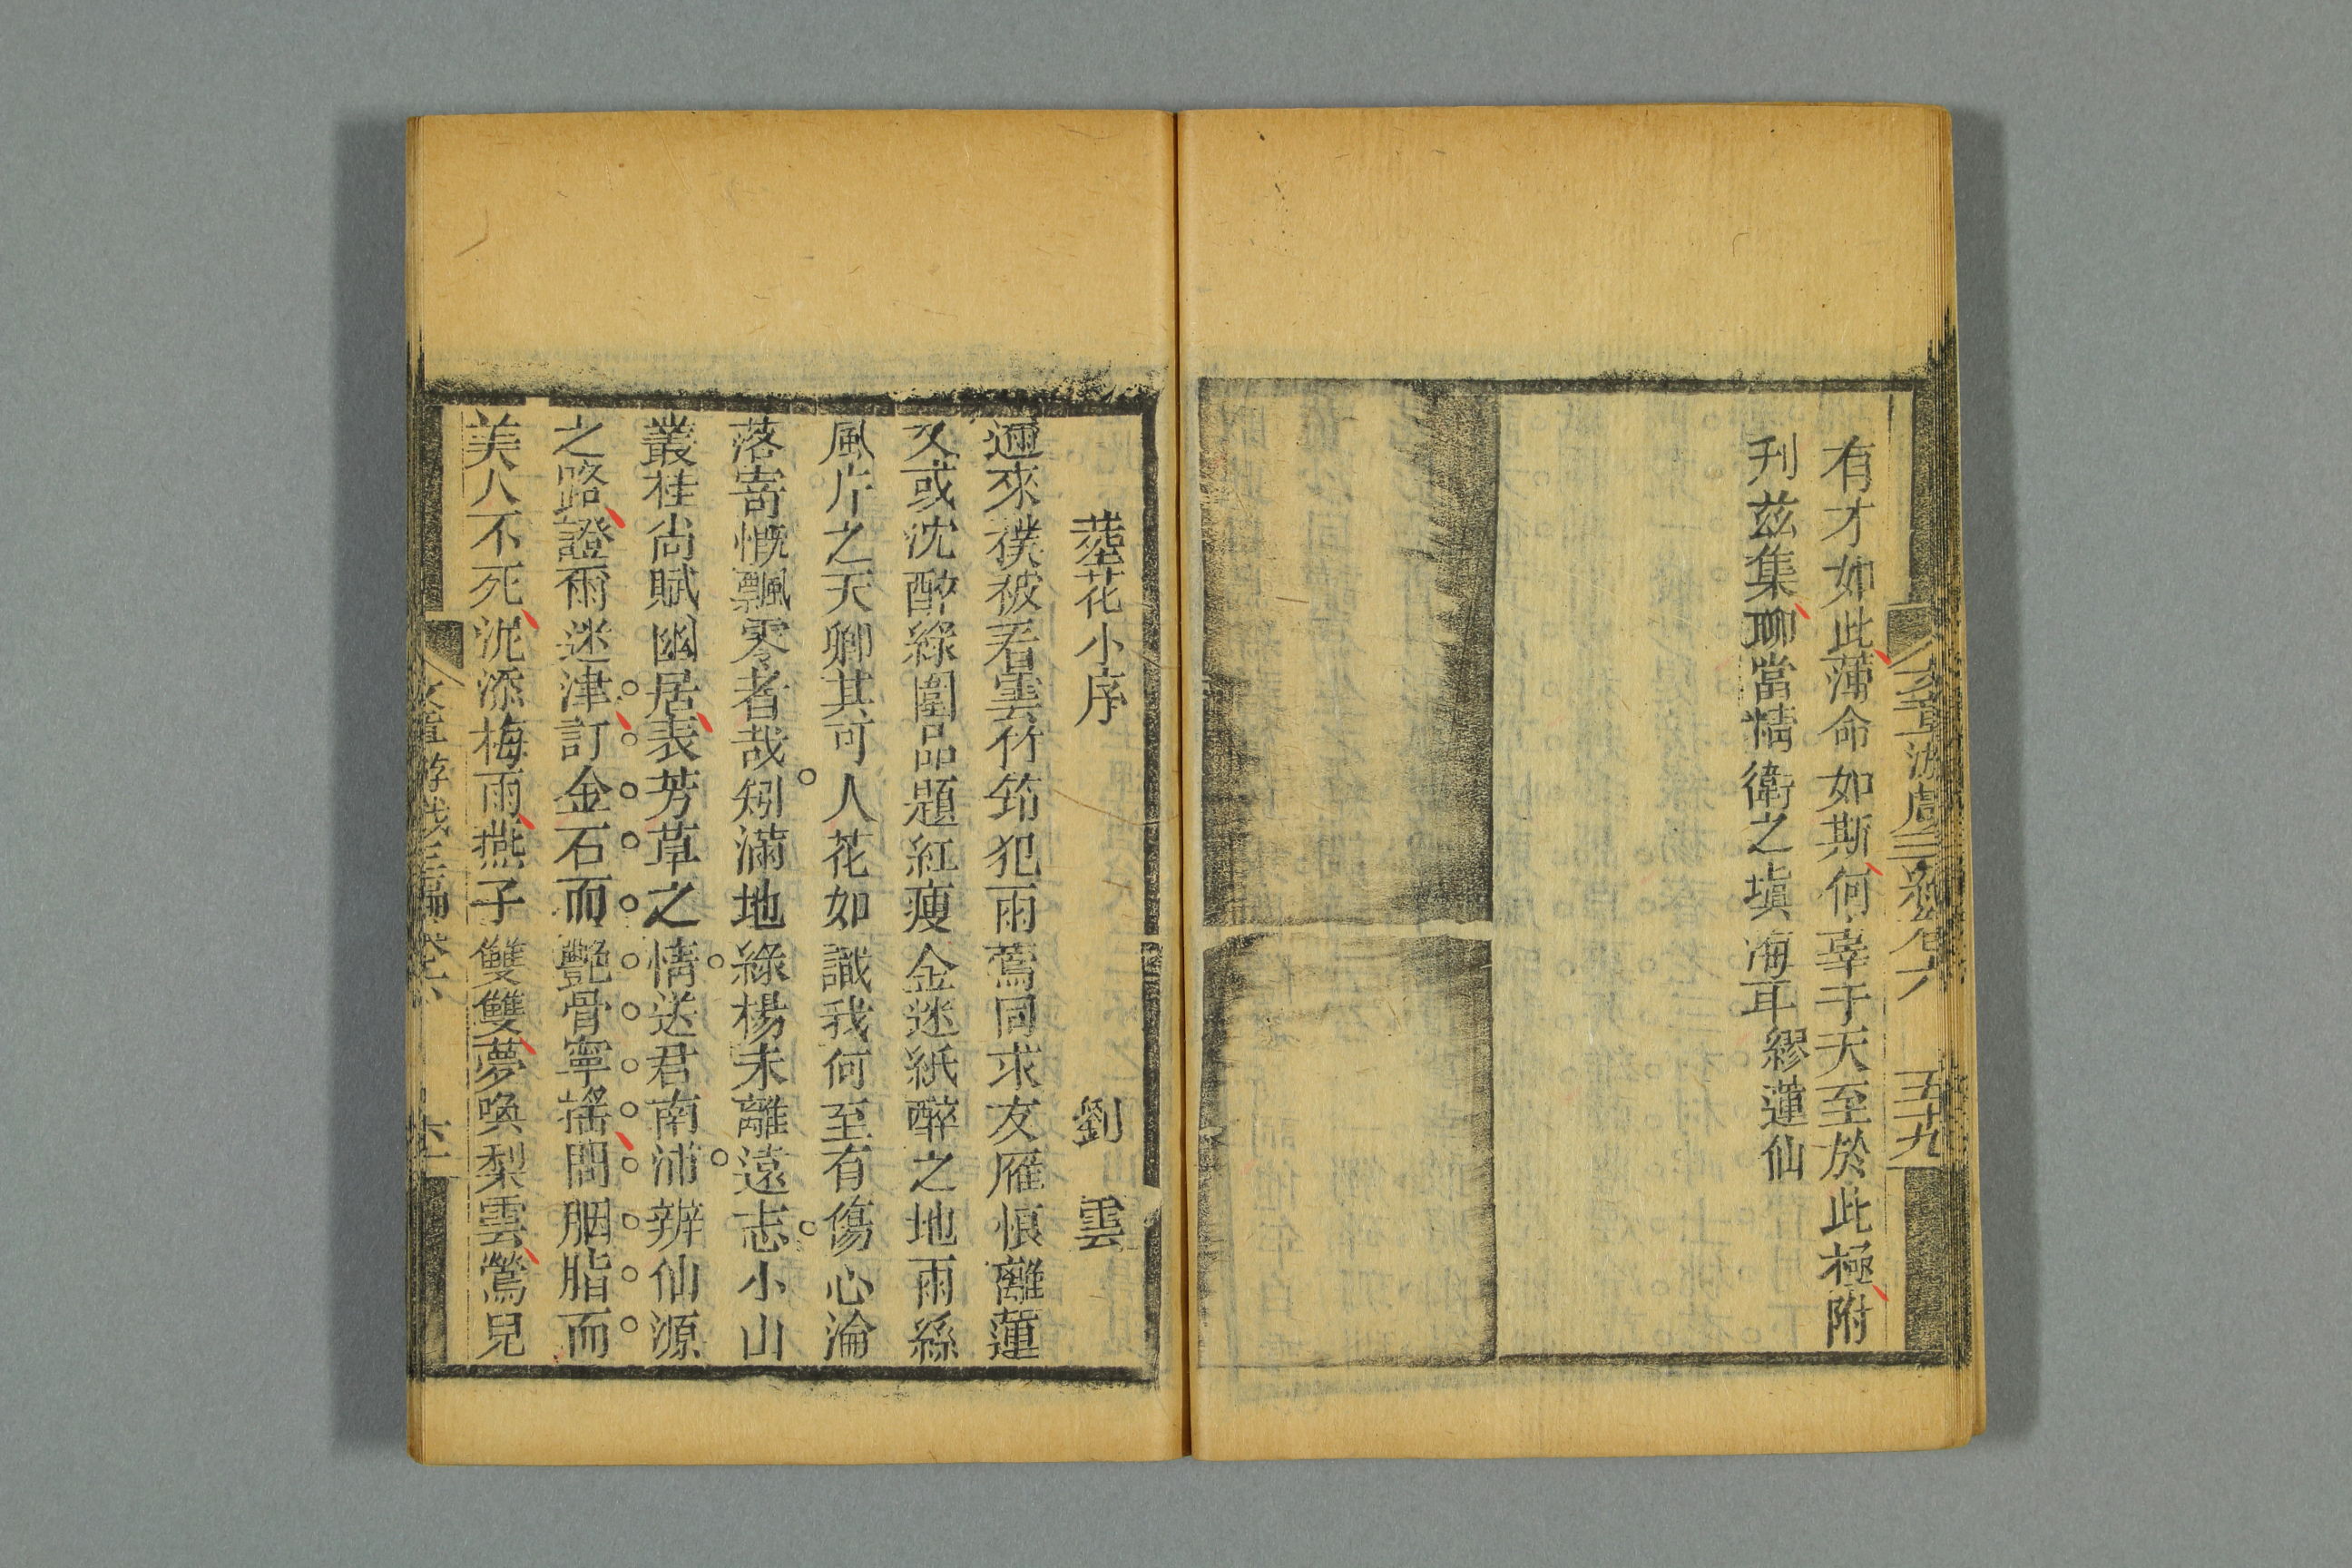 有才如此薄命如斯何辜于天至於此極附
刊兹集聊當精衛之塡海耳繆蓮仙
文章游戲三編卷六 五十九
葬花小序 劉雲
邇來襆被看雲竹笻犯雨鶯同求友雁恨離蓮
又或沈酔綠圍品題紅瘦金迷紙醉之地雨絲
風片之天卿其可人花如識我何至有傷心淪
落寄慨飄零者哉矧滿地綠楊未離遠志小山
叢桂尚賦幽居表芳草之情送君南浦辨仙源
之路證爾迷津訂金石而艷骨寧揺問胭脂而
美人不死泥添梅雨燕子雙雙夢喚梨雲鶯兒
文章游戲三編卷六